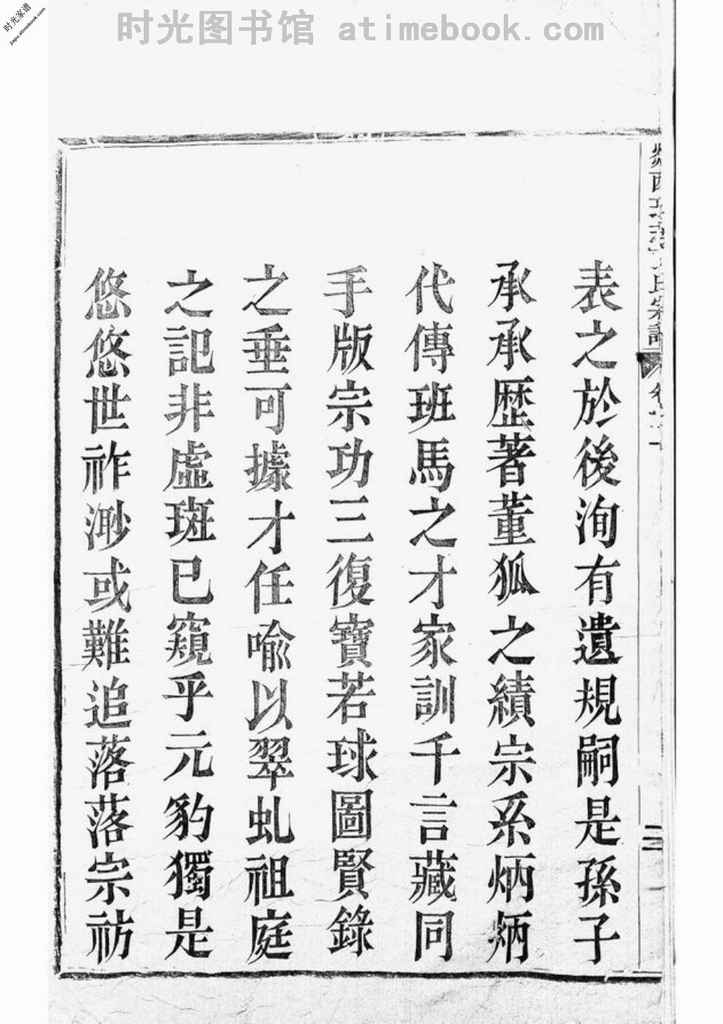 时光图书馆 atimebook.com
时光家谱
jiapu.atimebook.com
表之於後洵有遺規嗣是孫子
承承歴著董狐之績宗系炳炳
代傳班馬之才家訓千言藏同
手版宗功三復寶若球圖賢錄
之垂可據才任喻以翠虬祖庭
之記非虛斑已窺乎元豹獨是
悠悠世祚渺或難追落落宗祊
氏宗譜
二